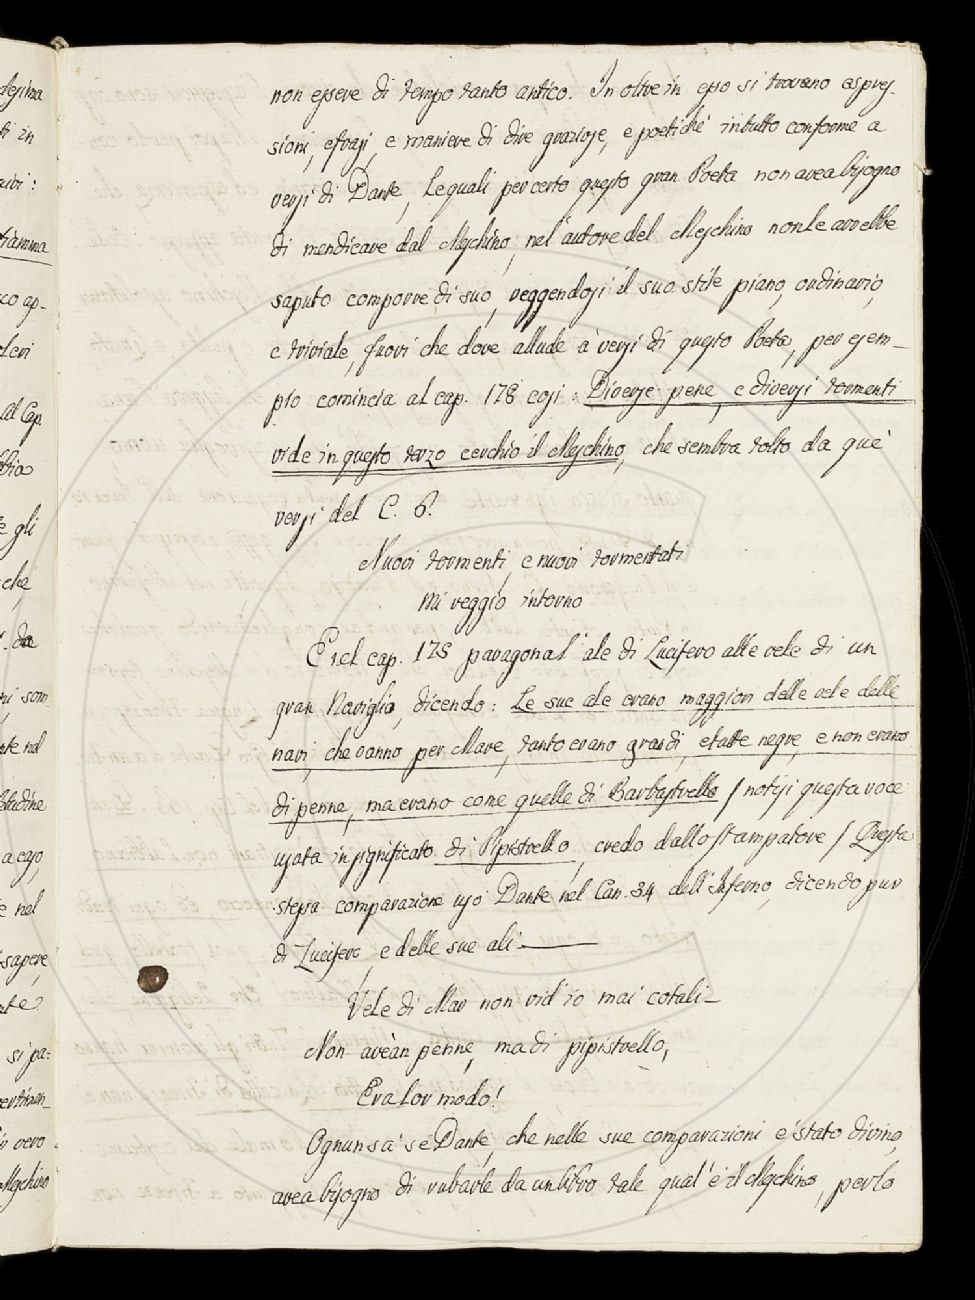 non essere di tempo tanto antico. In oltre in esso si trovano espres-
sioni, e frasi, e maniere di dire graziose, e poetiche in tutto conforme a
versi di Dante, le quali per certo questo gran Poeta non avea bisogno
di mendicare dal Meschino, nel'autore del Meschino non le avrebbe
saputo comporre di suo, veggendosi il suo stile piano, ordinario,
e triviale, fuori che dove allude à versi di questo Poeta, per esem-
pio comincia al cap. 178 cosi: Diverse pene, e diversi tormenti
vide in questo terzo cerchio il Meschino, che sembra tolto da que'
versi del C. 6.
Nuovi tormenti, e nuovi tormentati
Mi veggio intorno
E nel cap. 178 paragona l'ale di Lucifero alle vele di un
gran Naviglio, dicendo: Le sue ale erano maggiori delle vele delle
navi, che vanno per Mare, tanto erano grandi, e fatte negre, e non erano
di penne, ma erano come quelle di Barbastrello / notisi questa voce
usata in significato di Pipistrello, credo dallo stampatore / Questa
stessa comparazione usò Dante nel Can. 34 dell'Inferno, dicendo pur
di Lucifero, e delle sue ali
Vele di Mar non vid'io mai cotali-
Non avèan penne, ma di pipistrello,
Era lor modo!
Ognun sa' se Dante, che nelle sue comparazioni e' stato divino,
avea bisogno di rubarle da un libro tale qual'è il Meschino, per lo